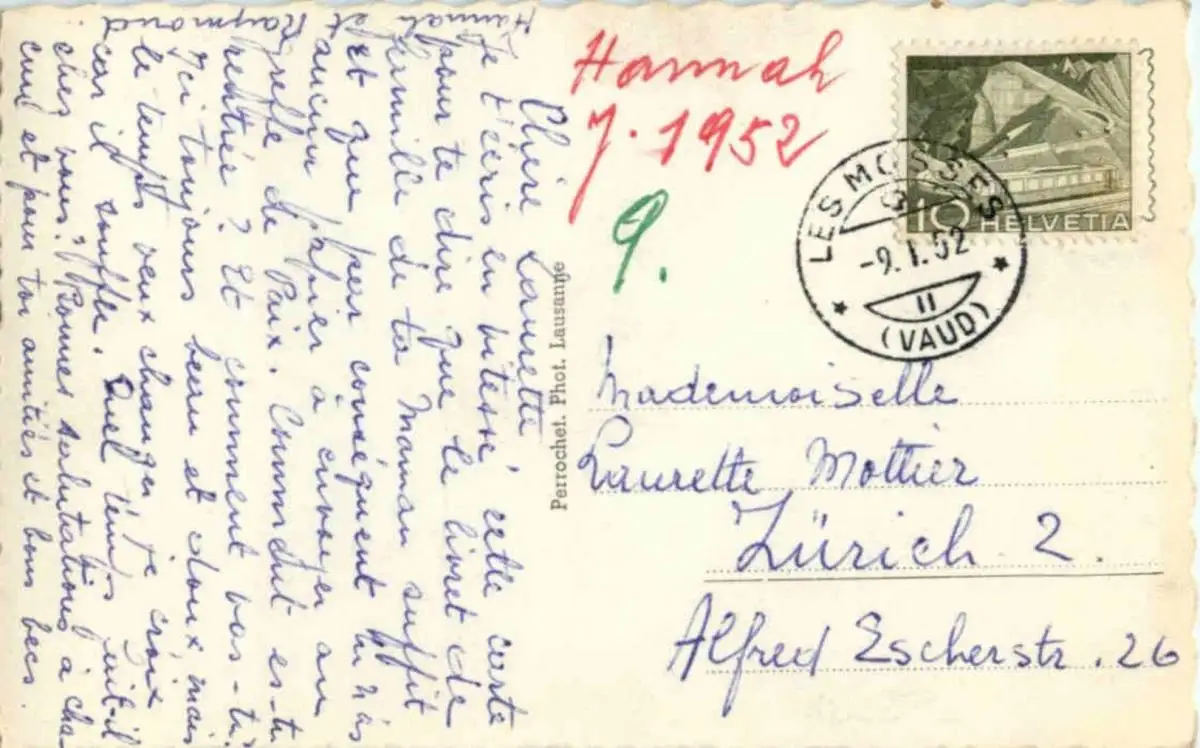 Chère Laurette
Je t'écris en vitesse cette carte
pour te dire que le livret de
famille de ta Maman suffit
et que par conséquent tu n'as
aucun papier à envoyer au
greffe de Paix. Comment es-tu
rentrée? Et comment vas-tu?
Ici toujours beau et doux mais
le temps veut changer je crois
car il souffle. Quel temps fait-il
chez vous? Bonnes salutations à cha-
cun et pour toi amitiés et bons becs.
Hannah et
Raymond
Perrochet. Phot. Lausanne
Hannah
J. 1952
9.
10 HELVETIA
LES MOSSES
-9.I.52
II
(VAUD)
Mademoiselle
Laurette Mottier
Zürich 2.
Alfred Escherstr. 26